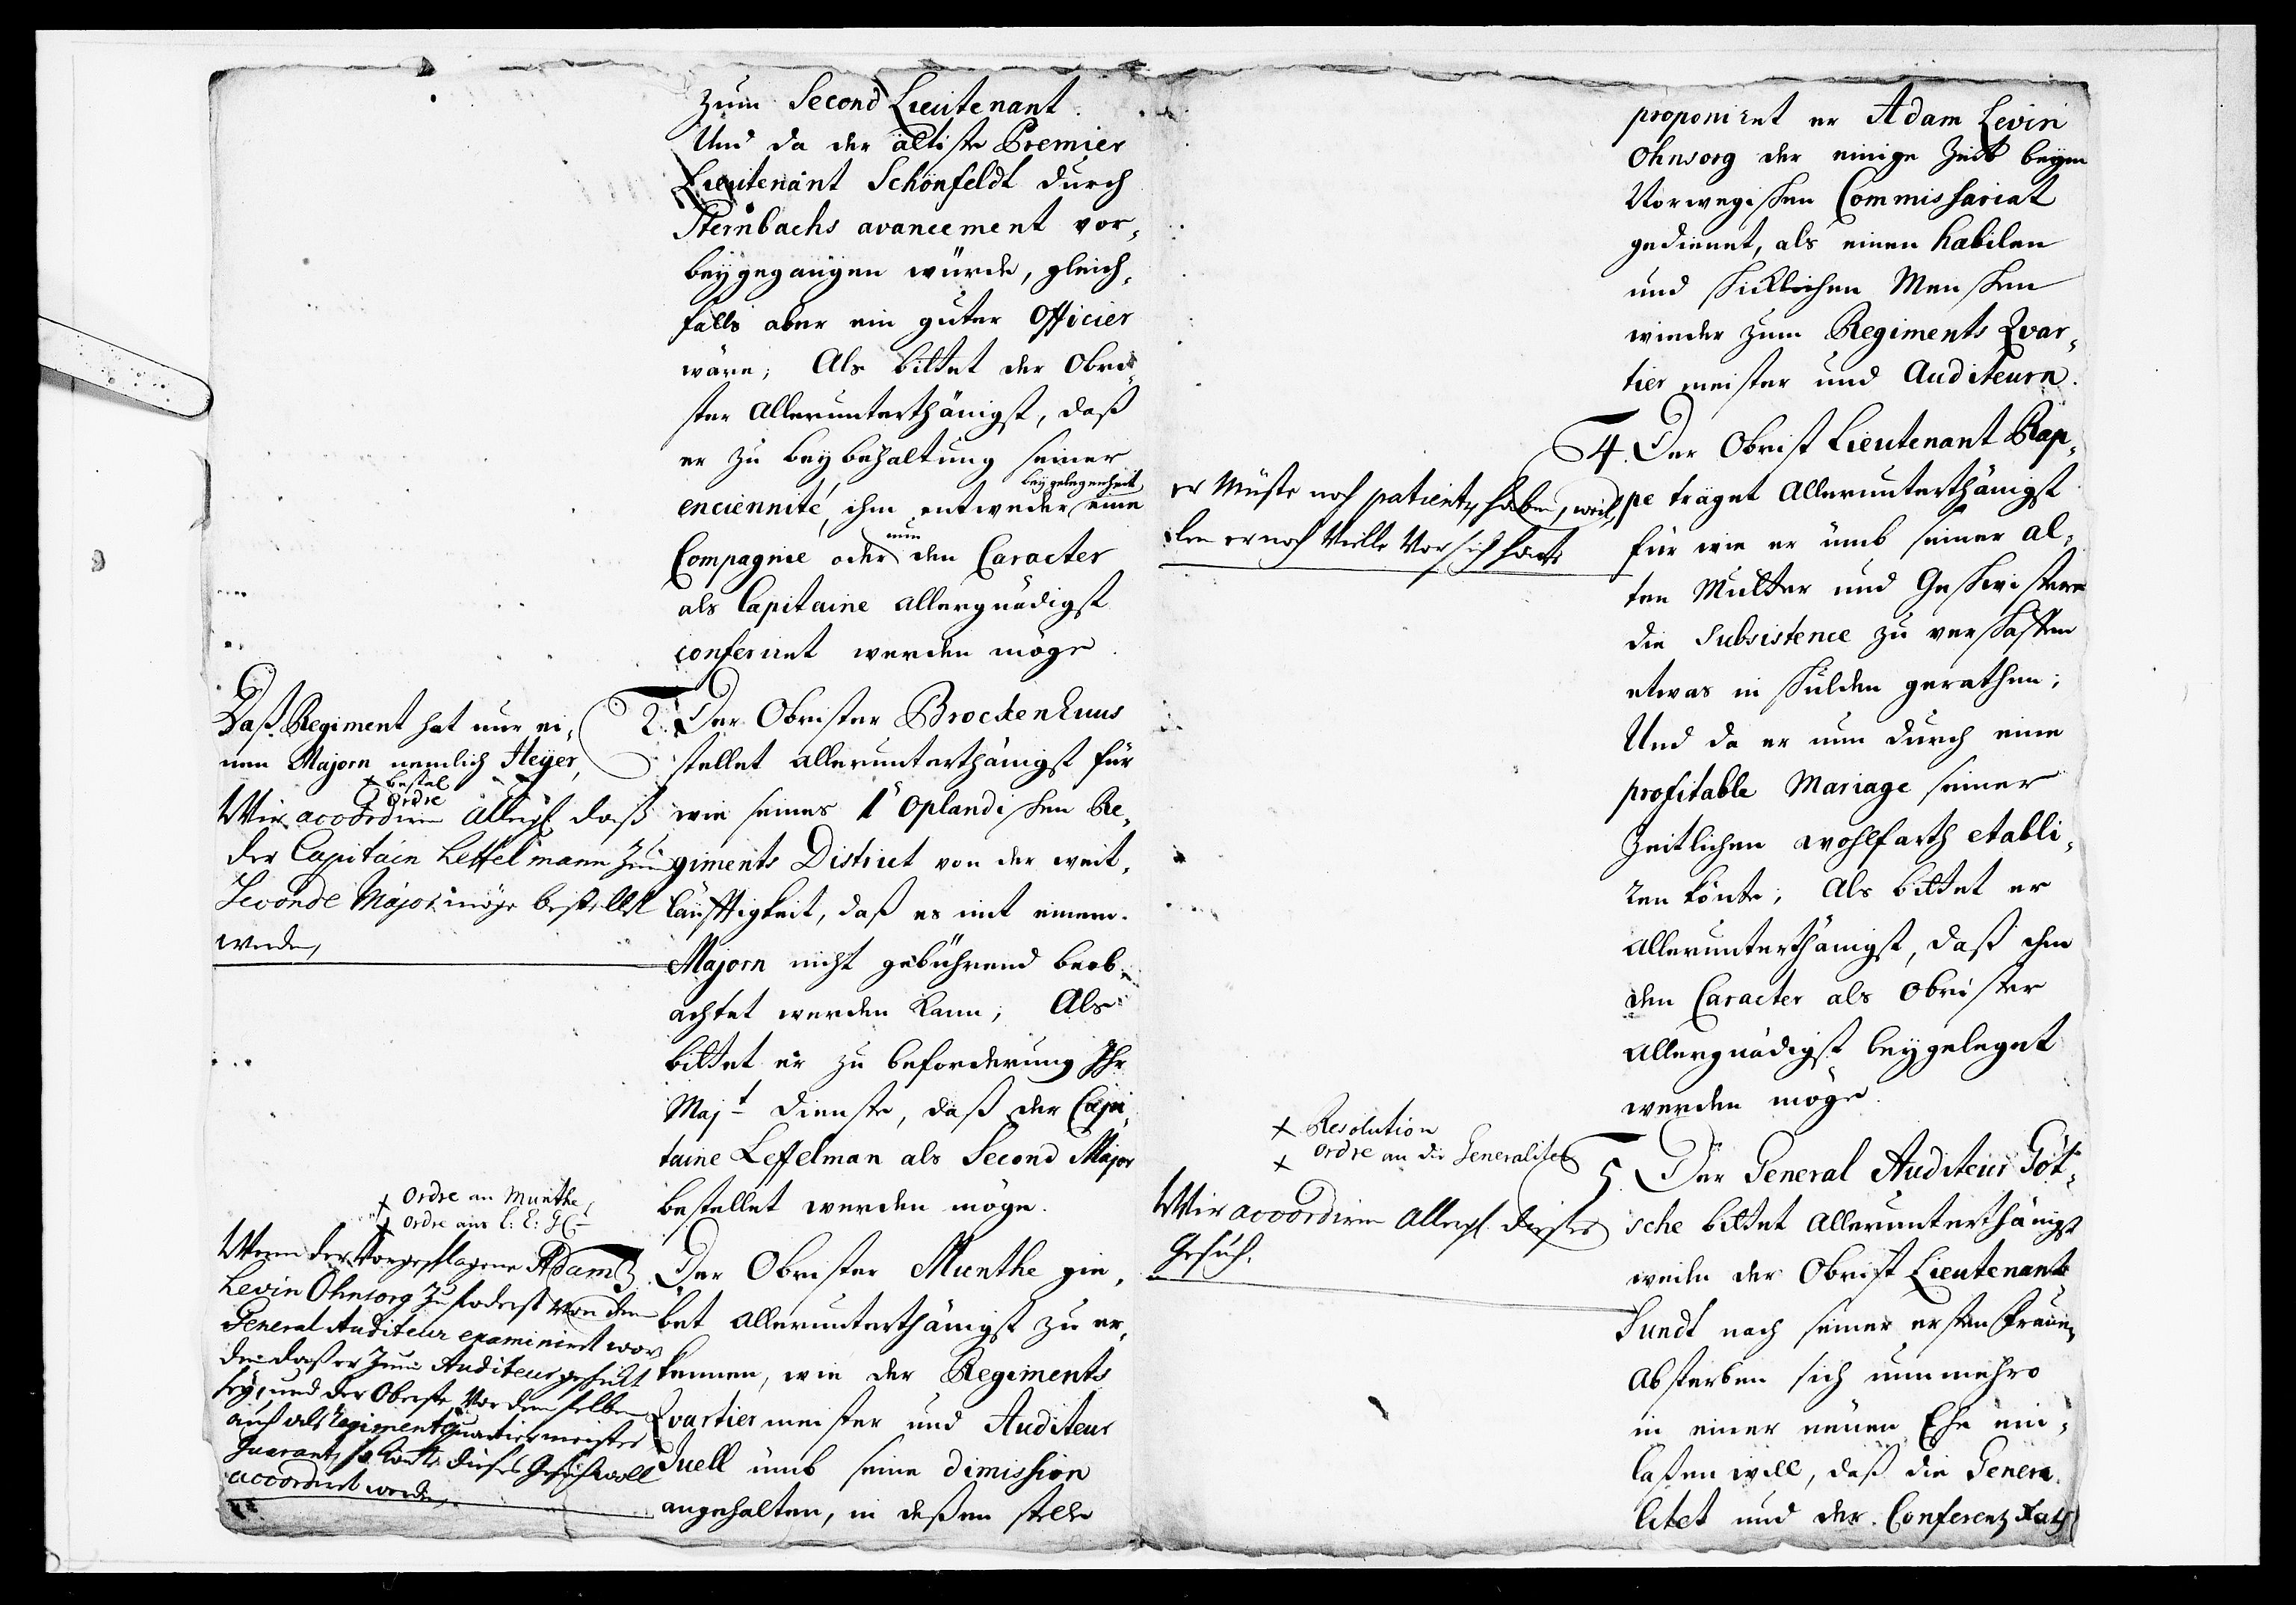 zum Second Lieutenant.
Und da der ältiste Premier
Lieutenant Schönfeldt durch
Sternbachs avancement vor-
beygegangen würde, gleich-
falls aber ein guter Officier
wäre; Als bittet der Obri-
ster allerunterthänigst, daß
er zu beybehaltung seiner
bey gelegenheit
enciennité, ihm entweder eine
nun
Compagnie oder den Caracter
als Capitaine allergnädigst
conferiret werden möge.
Daß Regiment hat nur ei-
nen Majorn nemlich Heyer,
x bestal
x ordre
Wir accordiren allergst daß
der Capitain Leffelmann zum
Seconde Major möge bestellet
werden,
2. Der Obrister Brockenhuus
stellet allerunterthänigst für
wie seines 1t Oplandischen Re-
giments District von der weit-
läufftigkeit, daß es mit einem
Majorn nicht gebührend beob-
achtet werden kann; Als
bittet er zu beforderung Ihr
Majt Dienste, daß der Capi-
taine Leffelman als Second Major
bestellet werden möge.
x Ordre an Munthe
x Ordre ans
Wenn der Vorgeschlagene Adam
Levin Ohnsorg zuforderst von dem
General Auditeur examiniret wor-
den daß er zum Auditeur geschickt
sey, und der Oberste vor denselben
auch als Regimentquartiermeister
guarant, so könte dieses Gesuch woll
accordiret werden,
3. Der Obrister Munthe gie-
bet allerunterthänigst zu er-
kennen, wie der Regiments
Qvartiermeister und Auditeur
Juell ümb seine dimission
angehalten, in deßen stelle
proponiret er Adam Levin
Ohnsorg der einige Zeit beym
Norwegischen Commissariat
gedienet, als einen habilen
und schicklichen Menschen
wieder zum Regiments Qvar-
tiermeister und Auditeurn.
er Müste noch patientz haben, weil
den er noch Vielle Vor sich hatt
4. Der Obrist Lieutenant Rap-
pe träget allerunterthänigst
für wie er ümb seiner al-
ten Mutter und Geschwistern
die Subsistence zu verschaffen
etwas in schulden gerathen;
Und da er nun durch eine
profitable Mariage seiner
Zeitlichen wohlfarth etabli-
ren könte; Als bittet er
allerunterthänigst, daß ihm
den Caracter als Obrister
allergnädigst beygeleget
werden möge.
x Resolution
x Ordre an die Generalitet
Wir accordiren allergst dieses
Gesuch.
5. Der General Auditeur Göt-
sche bittet allerunterthänigst
weilen der Obrist Lieutenant
Sundt nach seiner ersten Frauen
Absterben sich nunmehro
in einer neuen Ehe ein-
laßen will, daß die Genera-
litet und der Conferenz Rath